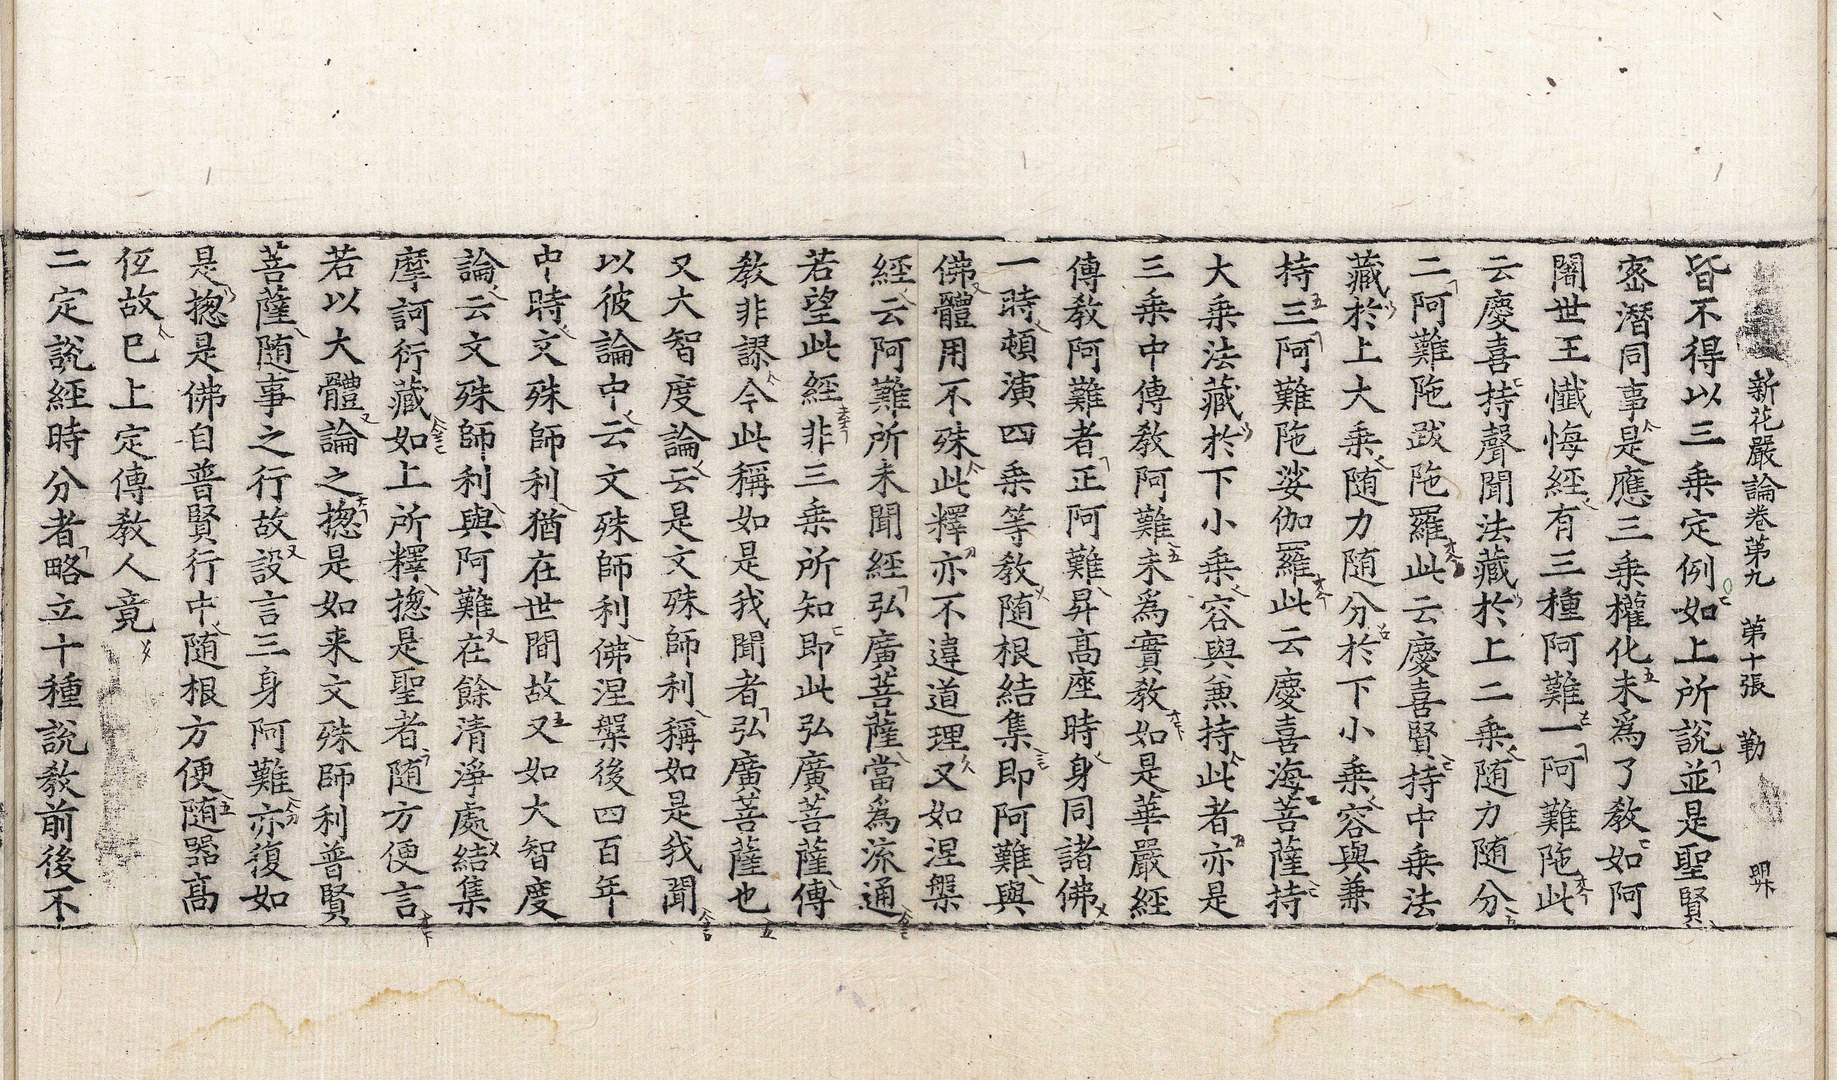 新花嚴論卷第九　第十張　勒
皆不得以三乗定例如上所說並是聖賢
宻潛同事是應三乗權化未爲了教如阿
闍世王懺悔經有三種阿難一阿難陁此
云慶喜持聲聞法藏於上二乗随力随分
二阿難陁跋陁羅此云慶喜賢持中乗法
藏於上大乗随力随分於下小乗容與兼
持三阿難陁娑伽羅此云慶喜海菩薩持
大乗法藏於下小乗容與兼持此者亦是
三乗中傳教阿難未爲實教如是華嚴經
傳教阿難者正阿難昇髙座時身同諸佛
一時頓演四乗等教随根結集即阿難與
佛體用不殊此釋亦不違道理又如涅槃
經云阿難所未聞經弘廣菩薩當爲流通
若望此經非三乗所知即此弘廣菩薩傳
教非謬今此稱如是我聞者弘廣菩薩也
又大智度論云是文殊師利稱如是我聞
以彼論中云文殊師利佛涅槃後四百年
中時文殊師利猶在世間故又如大智度
論云文殊師利與阿難在餘清淨處結集
摩訶衍藏如上所釋揔是聖者随方便言
若以大體論之揔是如来文殊師利普賢
菩薩随事之行故設言三身阿難亦復如
是揔是佛自普賢行中随根方便随器髙
仾故巳上定傳教人竟
二定說經時分者略立十種說教前後不